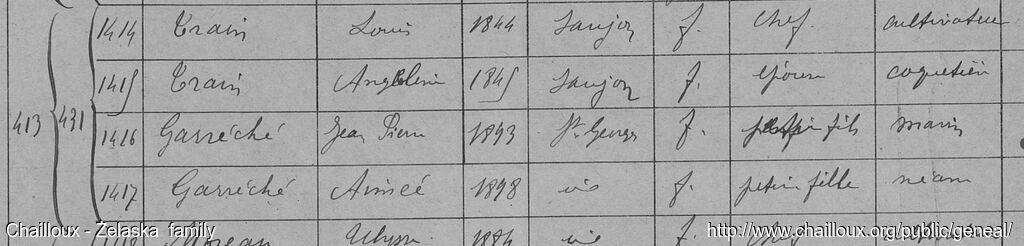 1414 Train Louis 1844 Saujon f. chef cultivateur
1415 Train Angeline 1845 Saujon f. épouse coquetier
413 431 1416 Garréché Jean Pierre 1893 St Georges f. petit fils marin
1417 Garréché Aimée 1898 f. petite fille néant
Ulysse f.
Chailloux - Zelaska family http://www.chailloux.org/public/geneal/